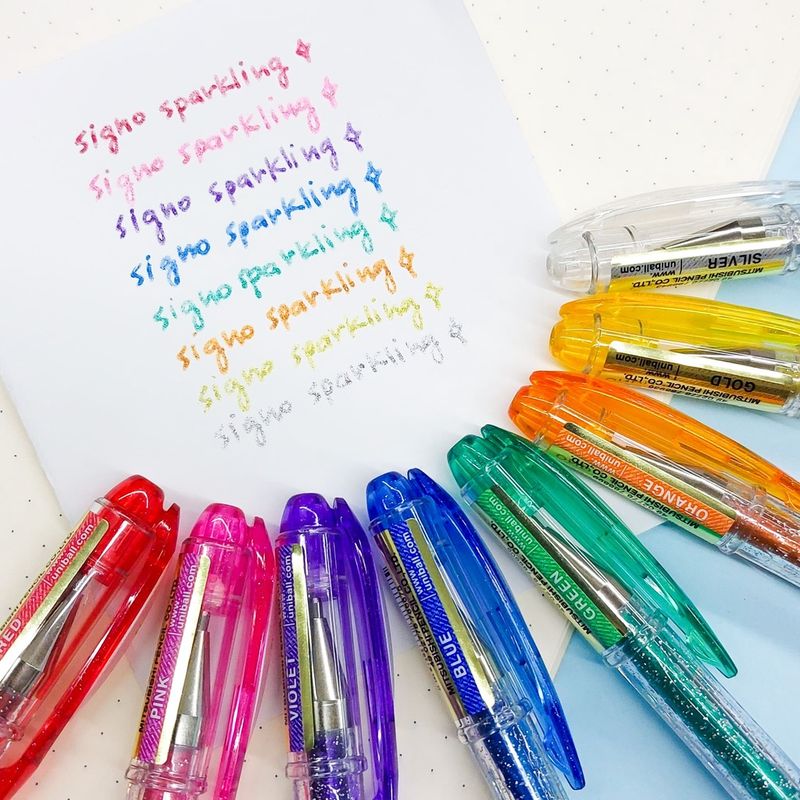 signo sparkling
signo sparkling
signo sparkling
signo sparkling
signo sparkling
signo sparkling
signo sparkling
signo sparkling
SILVER
www.
uniball.com
MITSUBISHI PENCIL CO.,LTD.
GOLD
www.
uniball.com
MITSUBISHI PENCIL CO.,LTD.
ORANGE
www.
uniball.com
MITSUBISHI PENCIL
GREEN
www.
uniball.com
MITSUBISHI PENCIL CO.,LTD.
BLUE
www.
uniball.com
MITSUBISHI PENCIL CO.,LTD.
VIOLET
www.
uniball.com
PINK
www.
uniball.com
RED
www.
uniball.com